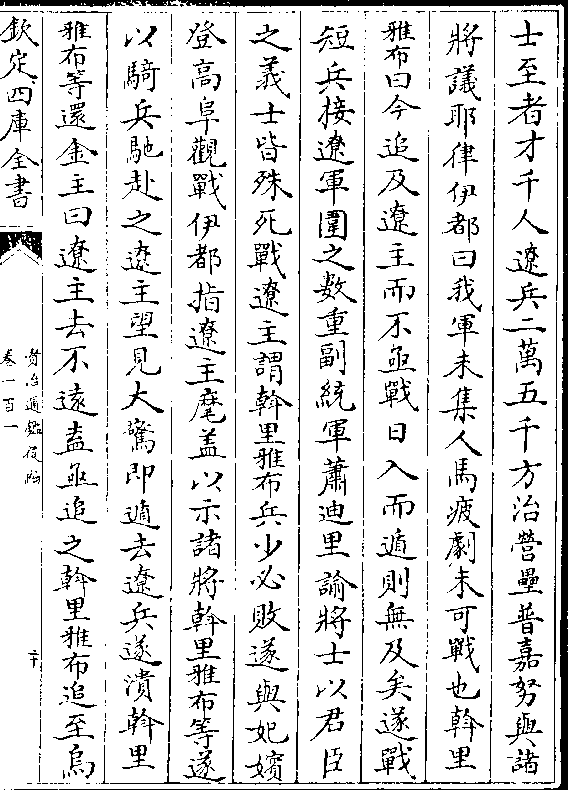 士至者才千人遼兵二萬五千方治營壘普嘉努與諸
將議耶律伊都曰我軍未集人馬疲劇未可戰也斡里
雅布曰今追及遼主而不亟戰日入而遁則無及矣遂戰
短兵接遼軍圍之數重副統軍蕭迪里諭將士以君臣
之義士皆殊死戰遼主謂斡里雅布兵少必敗遂與妃嬪
登高阜觀戰伊都指遼主麾盖以示諸將斡里雅布等遂
以騎兵馳赴之遼主望見大驚即遁去遼兵遂潰斡里
雅布等還金主曰遼主去不遠盍亟追之斡里雅布追至烏
欽定四庫全書
資治通鑑後編
卷一百一
二十